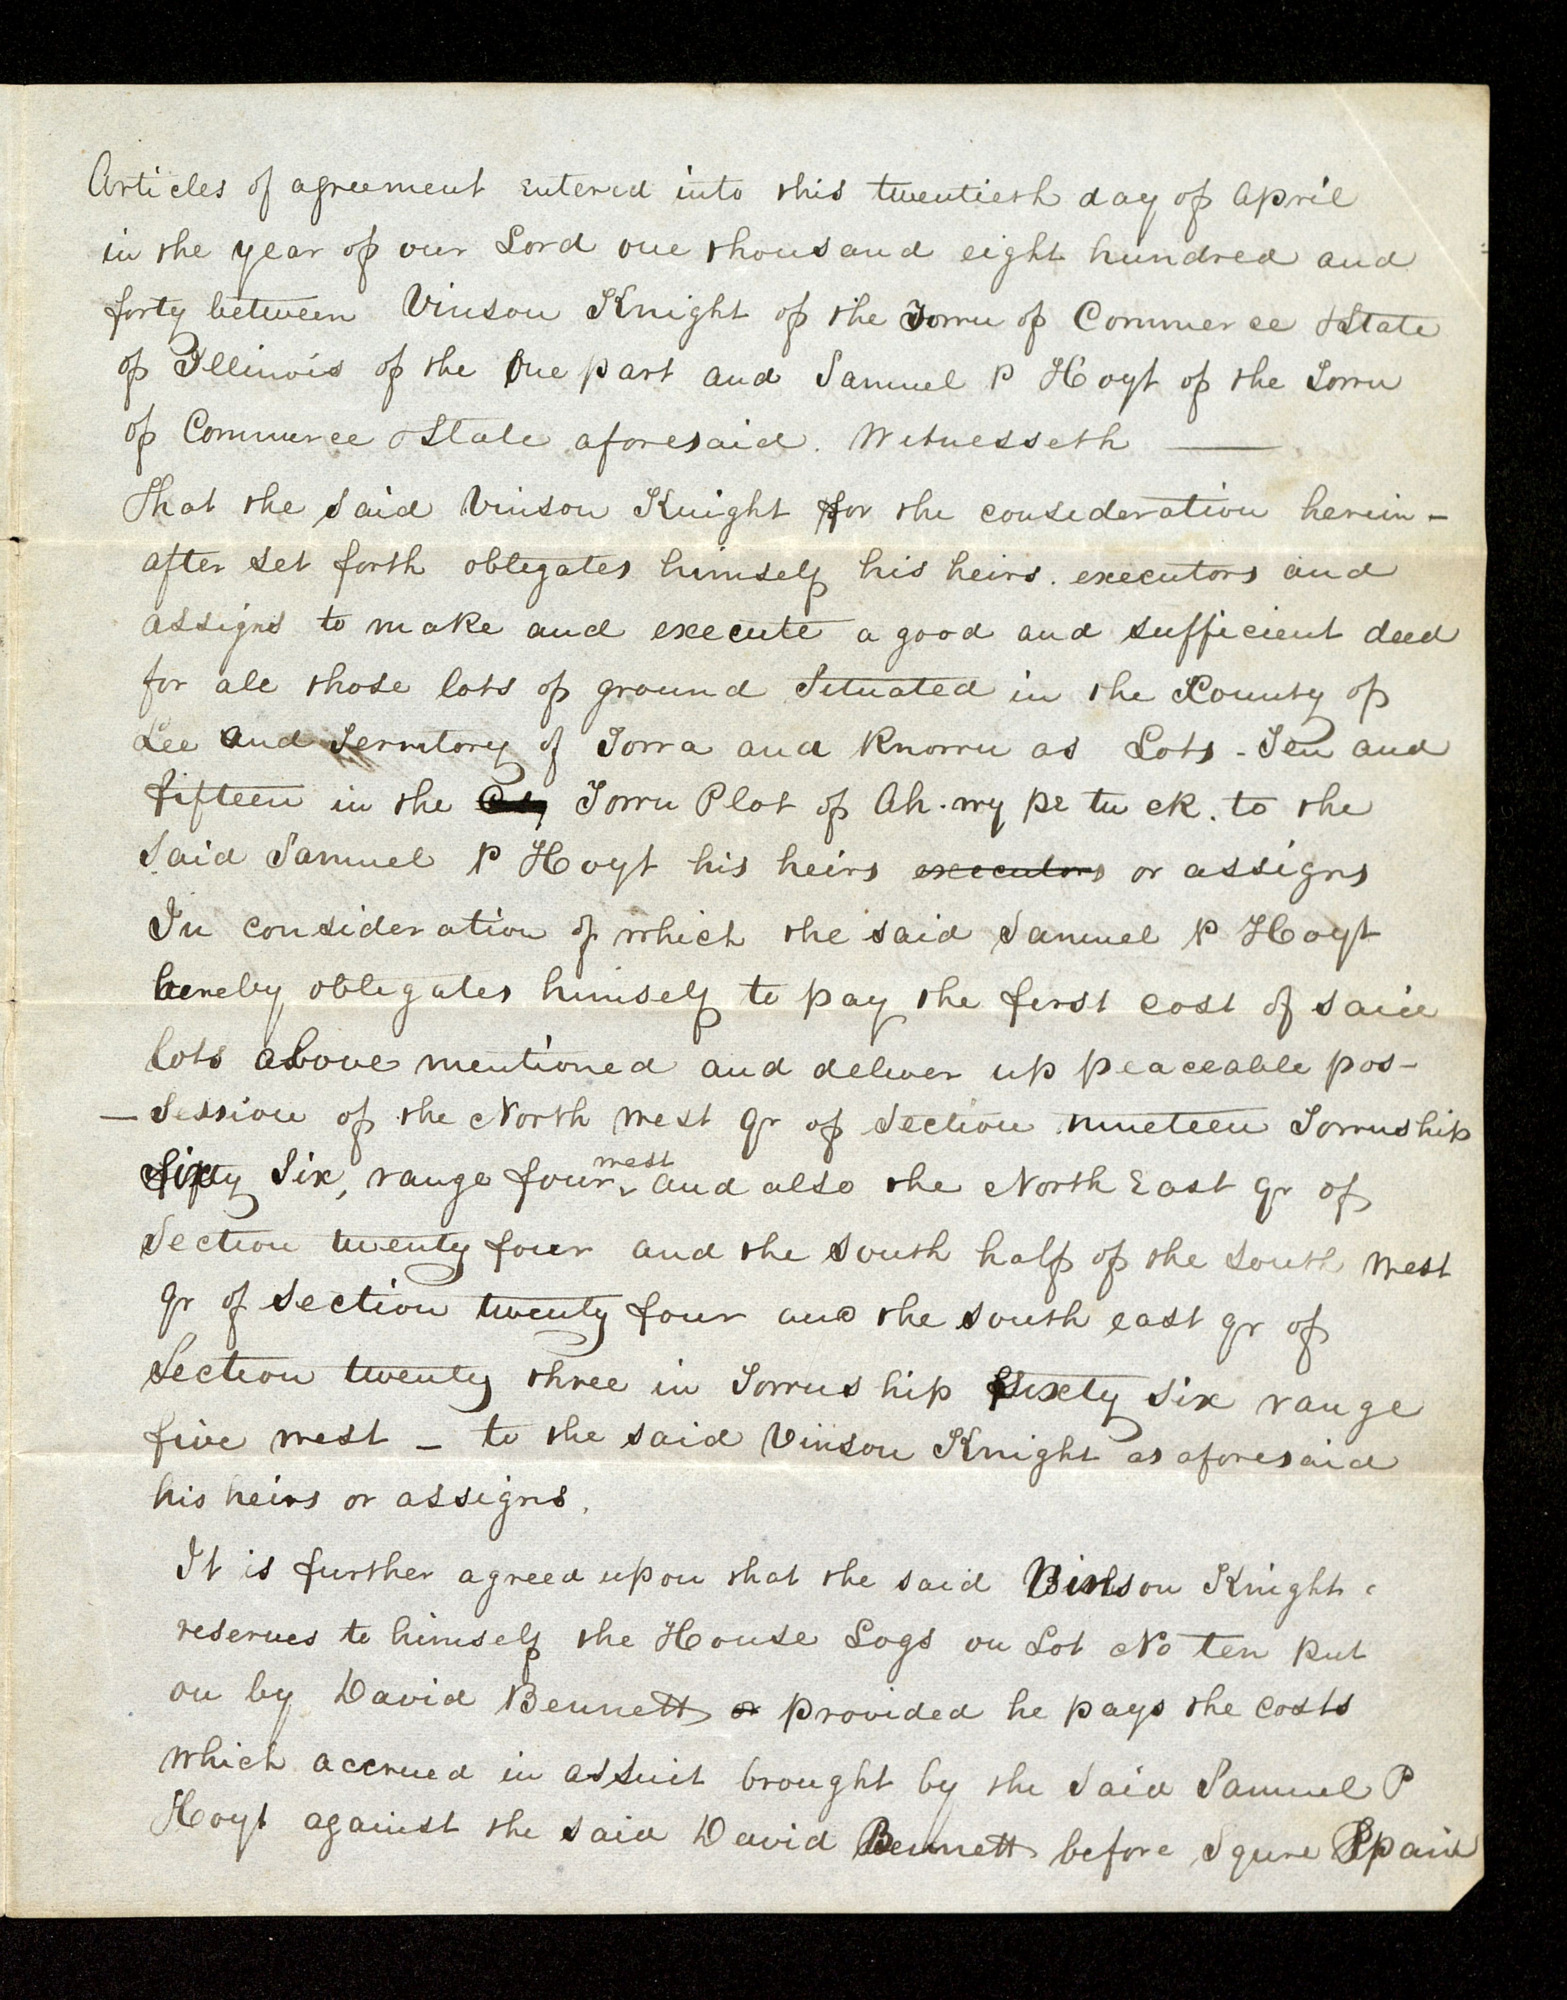 Articles of agreement entered into this twentieth day of April
in the year of our Lord one thousand eight hundred and
forty between Vinson Knight of the Town of Commerce & State
of Illinois of the One part and Samuel P Hoyt of the Town
of Commerce & State aforesaid. Witnesseth ———
That the said Vinson Knight for the consideration herein-
after set forth obligates himself his heirs. executors and
assigns to make and execute a good and sufficient deed
for all those lots of ground Situated in the County of
Lee and Territory of Iowa and known as Lots - Ten and
fifteen in the Town Plot of Ah. wy pe tu ck. to the
Said Samuel P Hoyt his heirs executors or assigns
In consideration of which the said Samuel P Hoyt
hereby obligates himself to pay the first cost of said
lots above mentioned and deliver up peaceable pos-
- Session of the North west qr of Section nineteen Township
Sixty Six, range four west and also the North East qr of
Section twenty four and the South half of the South west
qr of Section twenty four and the south east qr of
Section twenty three in Township Sixty six range
five west - to the said Vinson Knight as aforesaid
his heirs or assigns.
It is further agreed upon that the said Vinson Knight
reserves to himself the House Logs on Lot No ten put
on by David Bennett or provided he pays the costs
which accrued in assuit brought by the Said Samuel P
Hoyt against the said David Bennett before Squre Spain